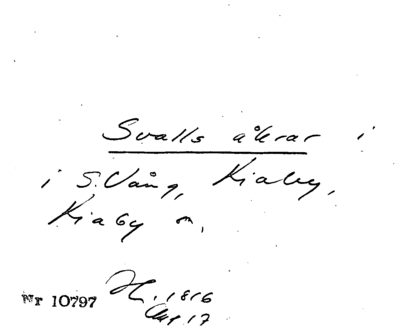 Svalls åkrar i
i S. Vång, Kiaby,
Kiaby sn.
Nr 10797
H. 1816
Akt 17